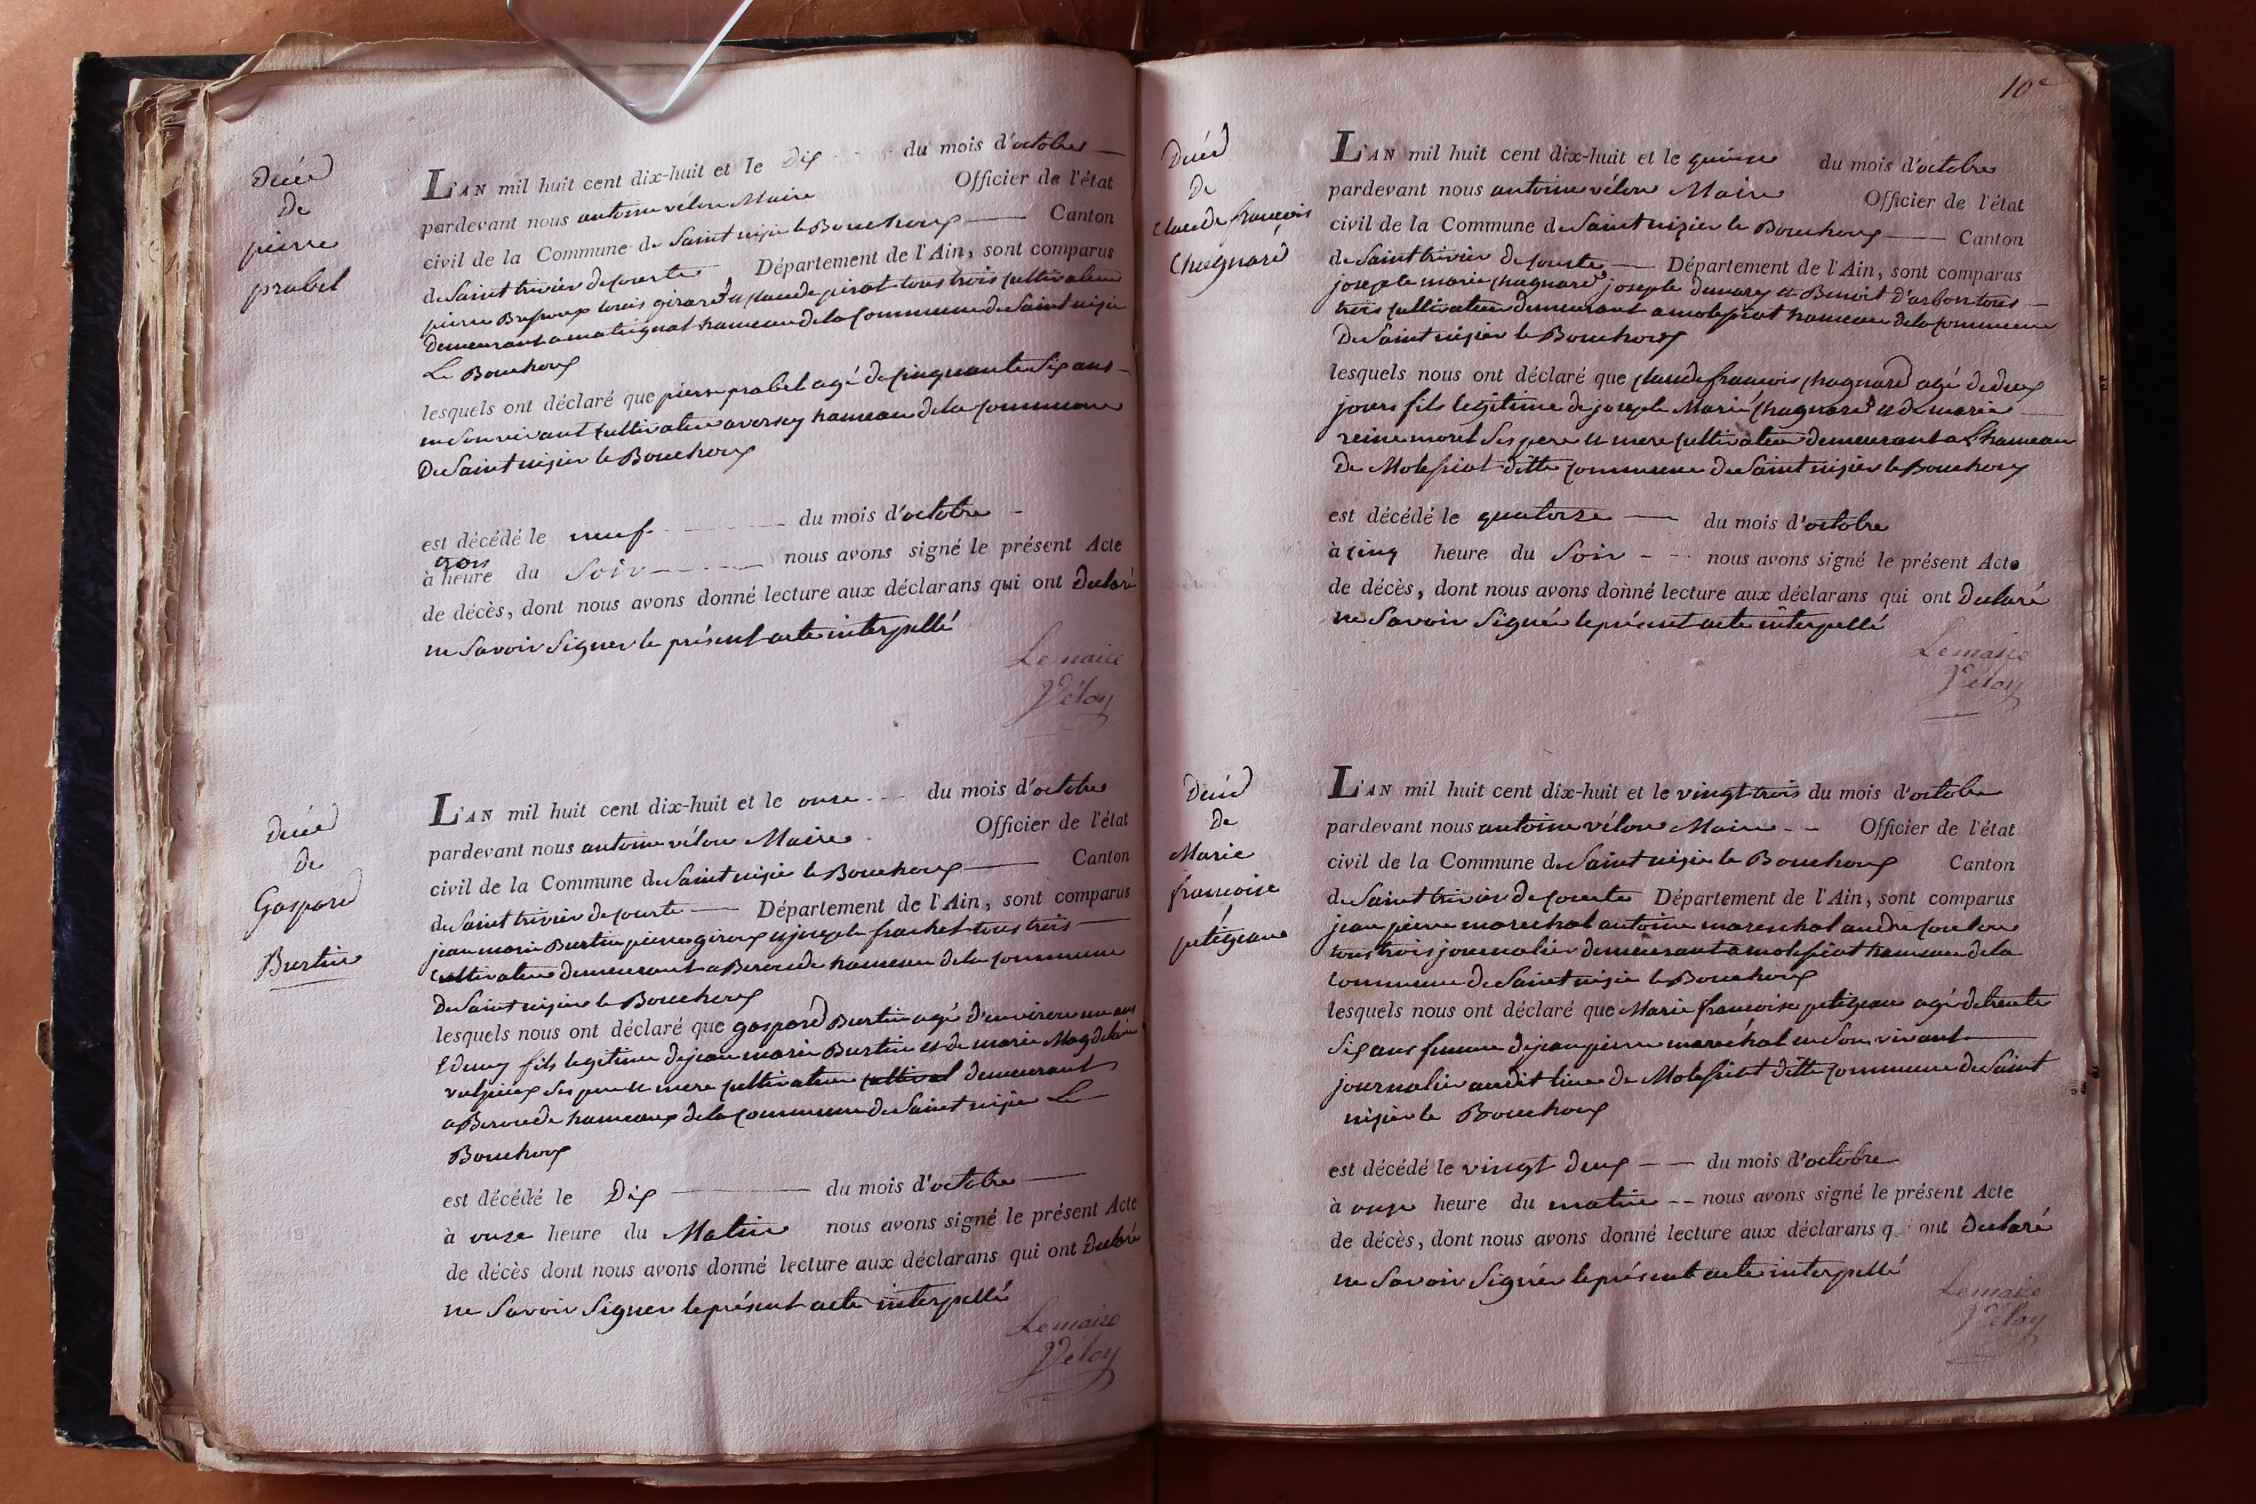 Décéd
de
pierre
prabel
L'AN mil huit cent dix-huit et le dix du mois d'octobre
pardevant nous antoine vélon Maire Officier de l'état
civil de la Commune de Saint nizie le Bouchoux Canton
de Saint trivier de courte Département de l'Ain, sont comparus
pierre louis girard et claude pirat tous trois cultivateur
demeurant a matignat hameau de la commune de Saint nizie
Le Bouchoux
lesquels ont déclaré que pierre prabel agé de cinquante six ans
en son vivant cultivateur a versey hameau de la commune
De Saint nizier le Bouchoux
est décédé le neuf du mois d'octobre
trois
à heure du Soir nous avons signé le présent Acte
de décès, dont nous avons donné lecture aux déclarans qui ont déclaré
ne Savoir Signer le présent acte interpellé
Le maire
Vélon
Décéd
de
Gaspard
Burtin
L'AN mil huit cent dix-huit et le onze du mois d'octobre
pardevant nous antoine vélon Maire Officier de l'état
civil de la Commune de Saint nizie le Bouchoux Canton
de Saint trivier de courte Département de l'Ain, sont comparus
jean marie Burtin pierre giroux et joseph frachet tous trois
cultivateur demeurant a Beroude hameau de la commune
De Saint nizier le Bouchoux
lesquels nous ont déclaré que gaspard Burtin agé d'environ un ans
Edemy fils legitime de jean marie Burtin et de marie Magdelaine
vulpieux Ses pere et mere cultivateur cultivat demeurant
a Beroude hameaux de la commune de Saint nizie Le
Bouchoux
est décédé le Dix du mois d'octobre
à onze heure du Matin nous avons signé le présent Acte
de décès dont nous avons donné lecture aux déclarans qui ont déclaré
ne Savoir Signer le présent acte interpellé
Le maire
Vélon
10e
Décéd
De
Claude francois
Chagnard
L'AN mil huit cent dix-huit et le quinze du mois d'octobre
pardevant nous antoine vélon Maire Officier de l'état
civil de la Commune de Saint nizier le Bouchoux Canton
de Saint trivier de courte Département de l'Ain, sont comparus
joseph marie chagnard joseph damarey et Benoit d'arbon tous
trois cultivateur demeurant a molefiat hameau de la commune
De Saint nizier le Bouchoux
lesquels nous ont déclaré que claude francois chagnard agé de deux
jours fils legitime de joseph Marie chagnard et de marie
reine morel Ses pere et mere cultivateur demeurant a L'hameau
De Molefiat ditte commune de Saint nizier le Bouchoux
est décédé le quatorze du mois d'octobre
à cinq heure du Soir nous avons signé le présent Acte
de décès, dont nous avons donné lecture aux déclarans qui ont déclaré
ne Savoir Signér le présent acte interpellé
Le maire
Vélon
Décéd
De
Marie
francoise
petigeau
L'AN mil huit cent dix-huit et le vingt trois du mois d'octobre
pardevant nous antoine vélon Maire Officier de l'état
civil de la Commune de Saint nizie le Bouchoux Canton
de Saint trivier de courte Département de l'Ain, sont comparus
jean pierre marechal antoine mareschal andre coulon
tous trois journalier demeurant a molefiat hameau de la
commune de Saint nizie le Bouchoux
lesquels nous ont déclaré que Marie francoise petigeau agé de trente
Six ans femme de jean pierre maréchal en Son vivant
journalier audit lieu de Molefiat ditte commune de Saint
nizier le Bouchoux
est décédé le vingt deux du mois d'octobre
à onze heure du matin nous avons signé le présent Acte
de décès, dont nous avons donné lecture aux déclarans q ont déclaré
ne Savoir Signér le présent acte interpellé
Le maire
Vélon